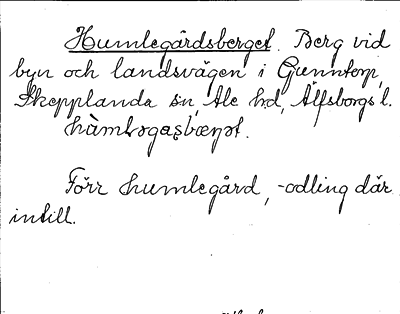 Humlegårdsberget. Berg vid
byn och landsvägen i Gunntorp,
Skepplanda sn, Ale hd, Älfsborgs l.
Förr humlegård, -odling där
intill.